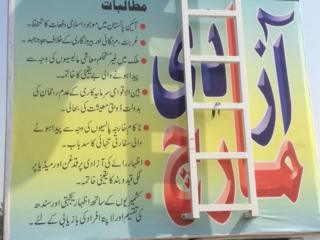 مطالبات
آئین پاکستان میں موجود اسلامی دفعات کا تحفظ۔
غربت، مہنگائی اور بیروزگاری کے خلاف جدوجہد۔
ملک میں غیر مستحکم معاشی پالیسیوں کی وجہ سے
پیدا ہونے والی بے یقینی کا خاتمہ۔
بین الاقوامی سرمایہ کاری کے عدم رجحان کی
بدولت ڈوبتی معیشت کی بحالی۔
ناکام خارجہ پالیسیوں کی وجہ سے پیدا ہونے
والی سفارتی تنہائی کا سدباب۔
اظہار رائے کی آزادی پر قدغن اور میڈیا پر
لگی قید و بند کا یقینی خاتمہ۔
کشمیریوں کے ساتھ اظہار یکجہتی اور سندھ کی
تقسیم اور لاپتہ افراد کی بازیابی کے لئے۔
آزادی
مارچ